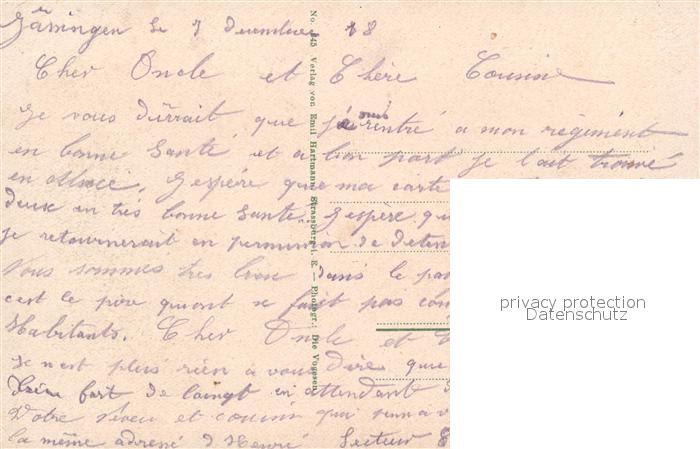 le 7 decembre 18
Cher Oncle et Chère Cousine
Je vous durrait que j'é rentré a mon régiment
en bonne Santé et a bon port Je l'ait trouvé
en alsace. J'espére que ma carte
deux en très bonne Santé. J'espère qu
je retournerait en permission de déten
Vous sommes tres bien dans le pa
c'est le pire qu'ont se fait pas com
Habitants. Cher Oncle et C
Je n'est plus rien a vous dire que
fort de loingt en attendant
Votre neveu et cousin qui
la même adresse Henri Secteur 8
No. 345 Verlag von Emil Hartmann, Strassburg i. E. — Photogr.: Die Vogesen
privacy protection
Datenschutz